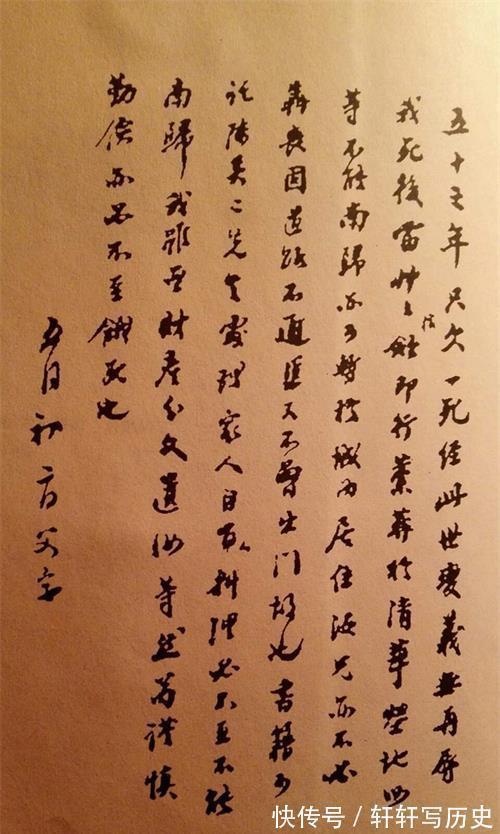 五十之年只欠一死經此世變義無再辱
我死後當草草棺斂即行藁葬於清華塋地汝
等不能南歸亦可暫於城內居住汝兄亦不必
奔喪因道路不通渠又不曾出門故也書籍可
託陳吳二先生處理家人自有人料理必不至不能
南歸我雖無財產分文遺汝等然苟謹慎
勤儉亦必不至餓死也
五月初二日父字
快传号/轩轩写历史